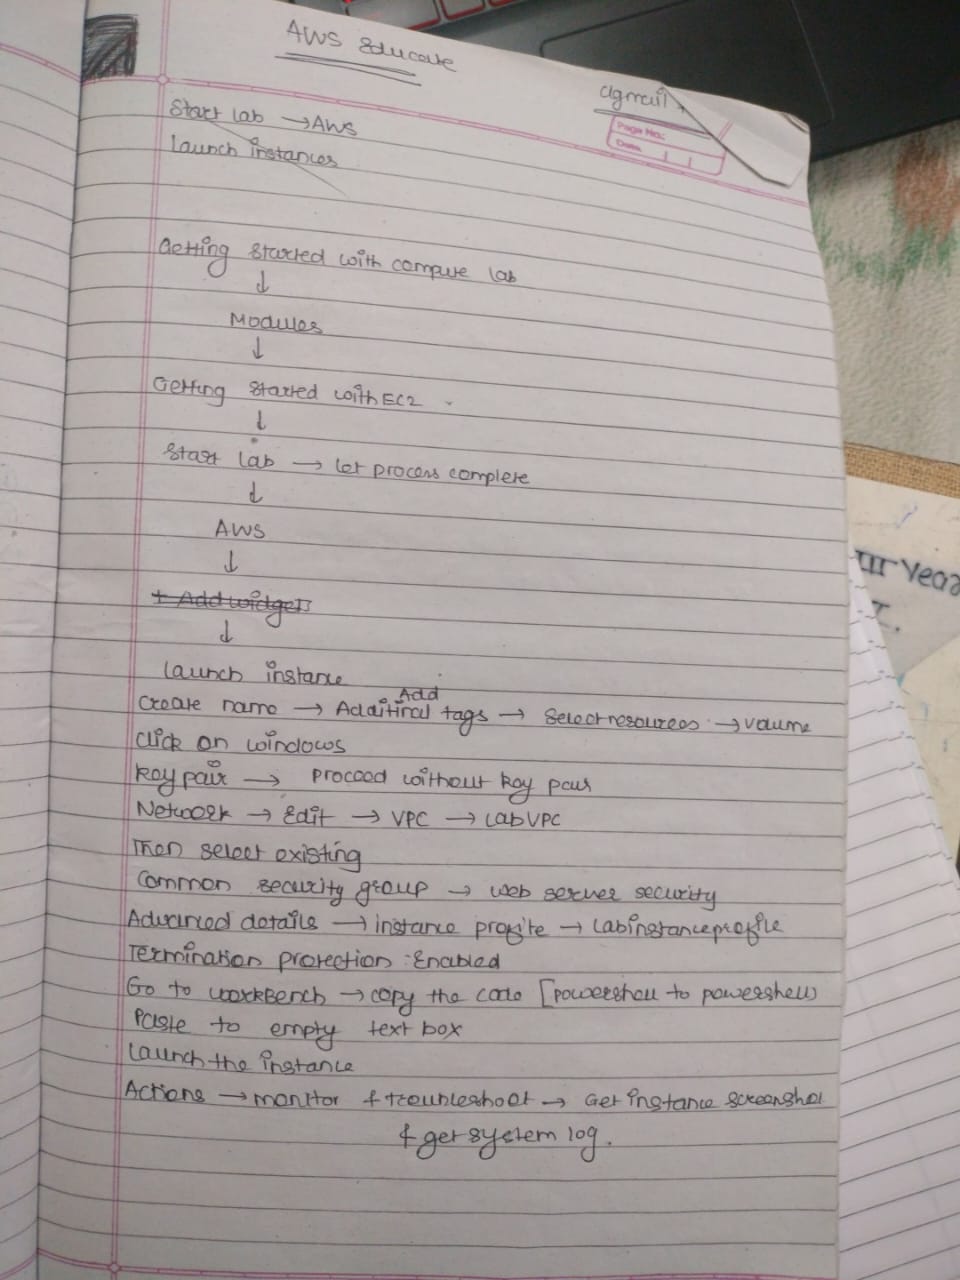 AWS Educate
@gmail
Page No:
Date
Start lab → AWS
Launch instances
Getting started with compute lab
↓
Modules
↓
Getting started with EC2
↓
Start lab → let process complete
↓
AWS
↓
+ Add widgets
↓
Launch instance
Create name → Additinal Add tags → Select resources → volume
click on windows
key pair → proceed without key pair
Network → Edit → VPC → Lab VPC
Then select existing
Common security group → web server security
Advanced details → instance profite → Labinstanceprofile
Termination protection : Enabled
Go to workBench → copy the code [powershell to powershell)
Paste to empty text box
Launch the instance
Actions → monitor & trounleshoot → Get instance screenshot
& get system log.
III Year
I.